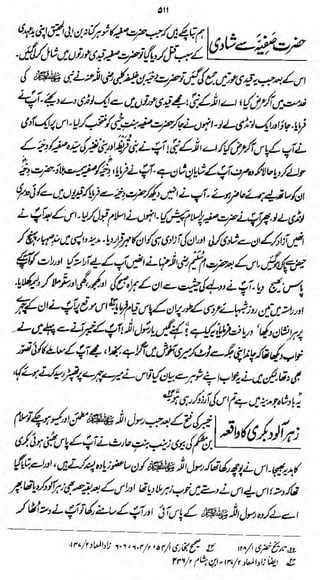 ۵۱۱
حضرت صفیہؓ سے شادی
ہم بتا چکے ہیں کہ جب حضرت صفیہ کا شوہر کنانہ بن ابی الحقیق اپنی بدعہدی
کے سبب قتل کر دیا گیا تو حضرت صفیہ قیدی عورتوں میں شامل کر لی گئیں۔
اس کے بعد جب یہ قیدی عورتیں جمع کی گئیں تو حضرت دحیہ بن خلیفہ کلبی رضی اللہ عنہ نے نبی ﷺ کی
خدمت میں آ کر عرض کیا: اے اللہ کے نبی! مجھے قیدی عورتوں میں سے ایک لونڈی دے دیجئے۔ آپ نے
فرمایا، جاؤ اور ایک لونڈی لے لو۔ انہوں نے جا کر حضرت صفیہ بنت حُیی کو منتخب کر لیا۔ اس پر ایک آدمی
نے آپ کے پاس آ کر عرض کیا کہ اے اللہ کے نبی! آپ نے بنی قریظہ اور بنی نضیر کی سیدہ صفیہ کو دحیہ کے
حوالے کر دیا حالانکہ وہ صرف آپ کے شایان شان ہے۔ آپ نے فرمایا، دحیہ کو صفیہ سمیت بلاؤ۔ حضرت دحیہ
ان کو ساتھ لیے ہوئے حاضر ہوئے۔ آپ نے انہیں دیکھ کر حضرت دحیہ سے فرمایا کہ قیدیوں میں سے کوئی دوسری
لونڈی لے لو۔ پھر آپ نے حضرت صفیہ پر اسلام پیش کیا۔ انہوں نے اسلام قبول کر لیا۔ اس کے بعد آپ نے
انہیں آزاد کر کے ان سے شادی کر لی اور ان کی آزادی ہی کو ان کا مہر قرار دیا۔ مدینہ واپسی میں سد صہباء پہنچ کر
حیض سے پاک ہو گئیں۔ اس کے بعد حضرت ام سلیم رضی اللہ عنہا نے انہیں آپ کے لیے آراستہ کیا اور رات کو آپ کے
پاس بھیج دیا۔ آپ نے دولہے کی حیثیت سے ان کے ہمراہ صبح کی اور کھجور، گھی اور ستو ملا کر ولیمہ کھلایا۔
اور راستہ میں تین روز شبہائے عروسی کے طور پر ان کے پاس قیام فرمایا۔ اس موقع پر آپ نے ان کے چہرے
پر ہرا نشان دیکھا۔ دریافت فرمایا، یہ کیا ہے؟ کہنے لگیں یا رسول اللہ! آپ کے خیبر آنے سے پہلے میں نے
خواب دیکھا تھا کہ چاند اپنی جگہ سے ٹوٹ کر میری آغوش میں آ گرا ہے۔ بخدا، مجھے آپ کے معاملے کا کوئی تصور
بھی نہ تھا لیکن میں نے یہ خواب اپنے شوہر سے بیان کیا تو اس نے میرے چہرے پر تھپڑ رسید کرتے ہوئے کہا،
یہ بادشاہ جو مدینہ میں ہے تم اس کی آرزو کر رہی ہو۔
زہر آلود بکری کا واقعہ
خیبر کی فتح کے بعد جب رسول اللہ ﷺ مطمئن اور یکسو ہو چکے تو سلام
بن مشکم کی بیوی زینب بنت حارث نے آپ کے پاس بھنی ہوئی بکری
کا ہدیہ بھیجا۔ اس نے پوچھ رکھا تھا کہ رسول اللہ ﷺ کون سا عضو زیادہ پسند کرتے ہیں، اور اسے بتایا گیا
تھا کہ دستہ؛ اس لیے اس نے دستے میں خوب زہر ملا دیا تھا اور اس کے بعد بقیہ حصہ بھی زہر آلود کر دیا تھا، پھر
اسے لے کر وہ رسول اللہ ﷺ کے پاس آئی اور آپ کے سامنے رکھا تو آپ نے دستہ اٹھا کر
تاریخ خضری ۱/۱۲۸ صحیح بخاری ۱/۵۴، ۲/۶۰۴، ۶۰۶ زاد المعاد ۲/۱۳۷
ایضاً زاد المعاد ۲/۱۳۷۔ ابن ہشام ۲/۳۳۶